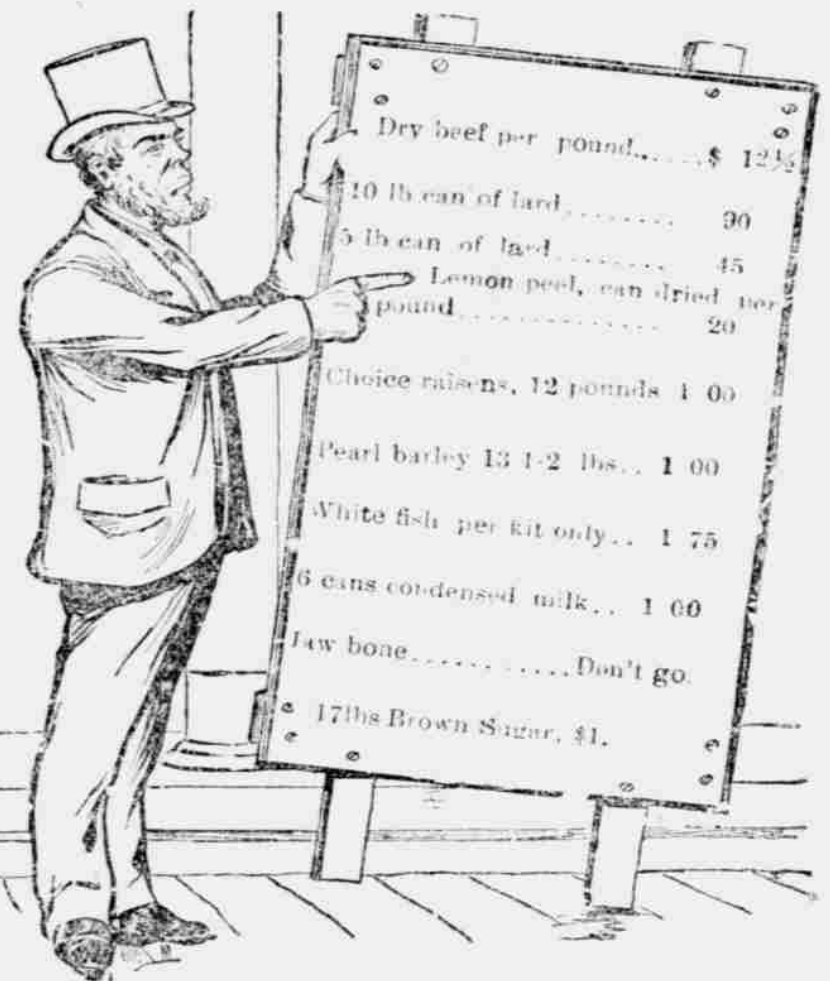 Dry beef per pound.......$ 12½
10 lb can of lard......... 90
5 lb can of lard......... 45
Lemon peel, can dried per
pound............... 20
Choice raisens, 12 pounds 1 00
Pearl barley 13 1-2 lbs.. 1 00
White fish per kit only.. 1 75
6 cans condensed milk.. 1 00
Jaw bone............Don't go.
17lbs Brown Sugar, $1.